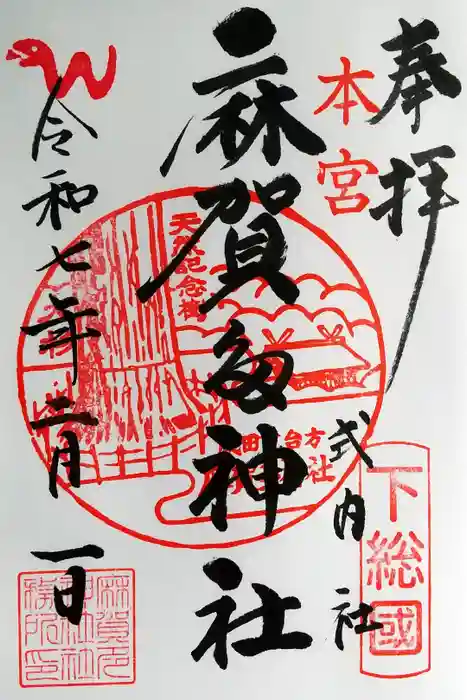 奉拝
本宮
麻賀多神社
式内社
下総國
天然記念樹
台方
社
令和七年二月一日
麻賀多
神社社
務所印